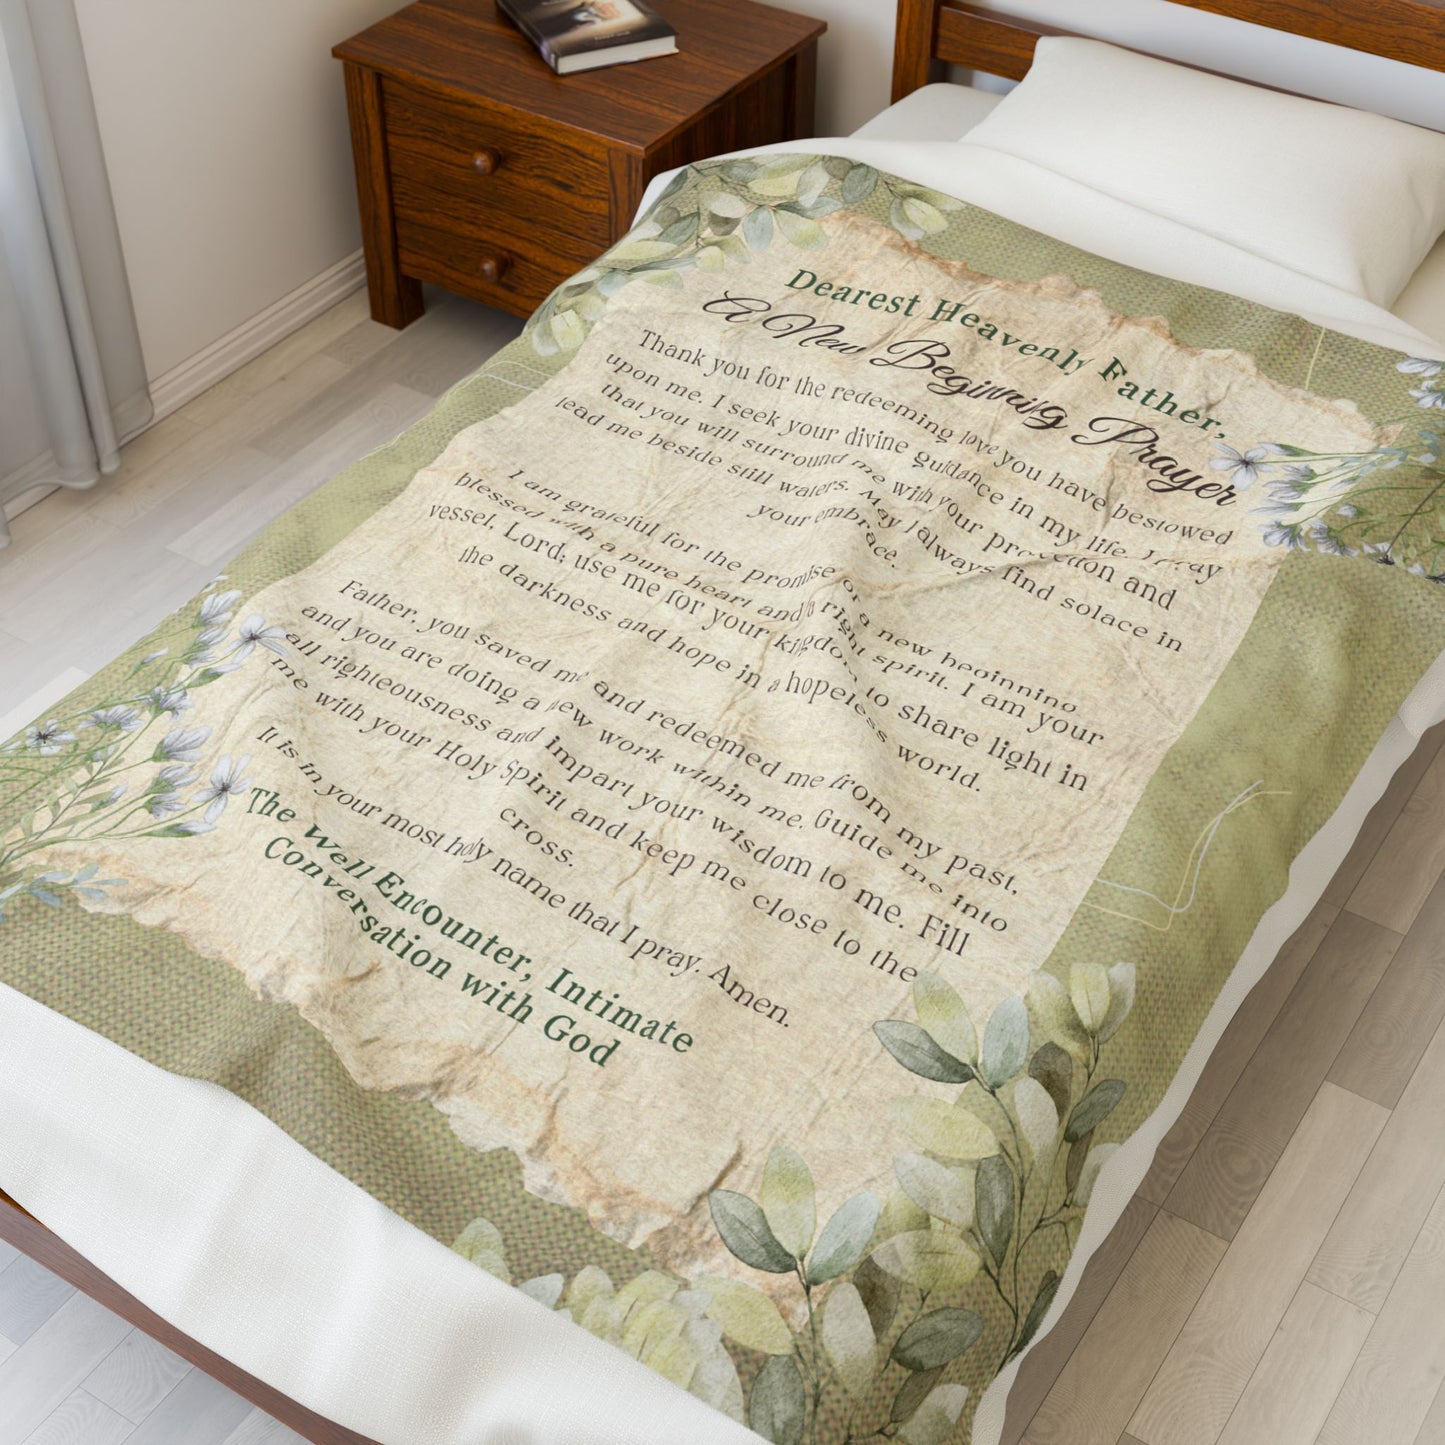 Dearest Heavenly Father,
A New Beginning Prayer
Thank you for the redeeming love you have bestowed
upon me. I seek your divine guidance in my life. I pray
that you will surround me with your protection and
lead me beside still waters. May I always find solace in
your embrace.
I am grateful for the promise of a new beginning
blessed with a pure heart and a right spirit. I am your
vessel, Lord; use me for your kingdom to share light in
the darkness and hope in a hopeless world.
Father, you saved me and redeemed me from my past,
and you are doing a new work within me. Guide me into
all righteousness and impart your wisdom to me. Fill
me with your Holy Spirit and keep me close to the
cross.
It is in your most holy name that I pray. Amen.
The Well Encounter, Intimate
Conversation with God